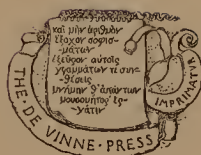 καὶ μὴν ἀριθμὸν
ἔξοχον σοφισ-
-μάτων
ἐξεῦρον αὐτοῖς
γραμμάτων τε συν-
-θέσεις
μνήμην θ' ἁπάντων
ἐρ-
γάτιν
THE · DE VINNE · PRESS
IMPRIMATUR